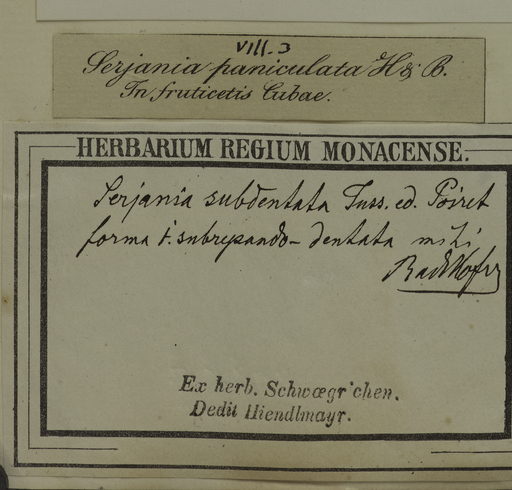 VIII. 3
Serjania paniculata H & B.
In fruticetis Cubae.
HERBARIUM REGIUM MONACENSE.
Serjania subdentata Juss. ed. Poiret
forma 1. subrepando-dentata mihi
Radlkofer
Ex herb. Schwægr'chen.
Dedit Hiendlmayr.